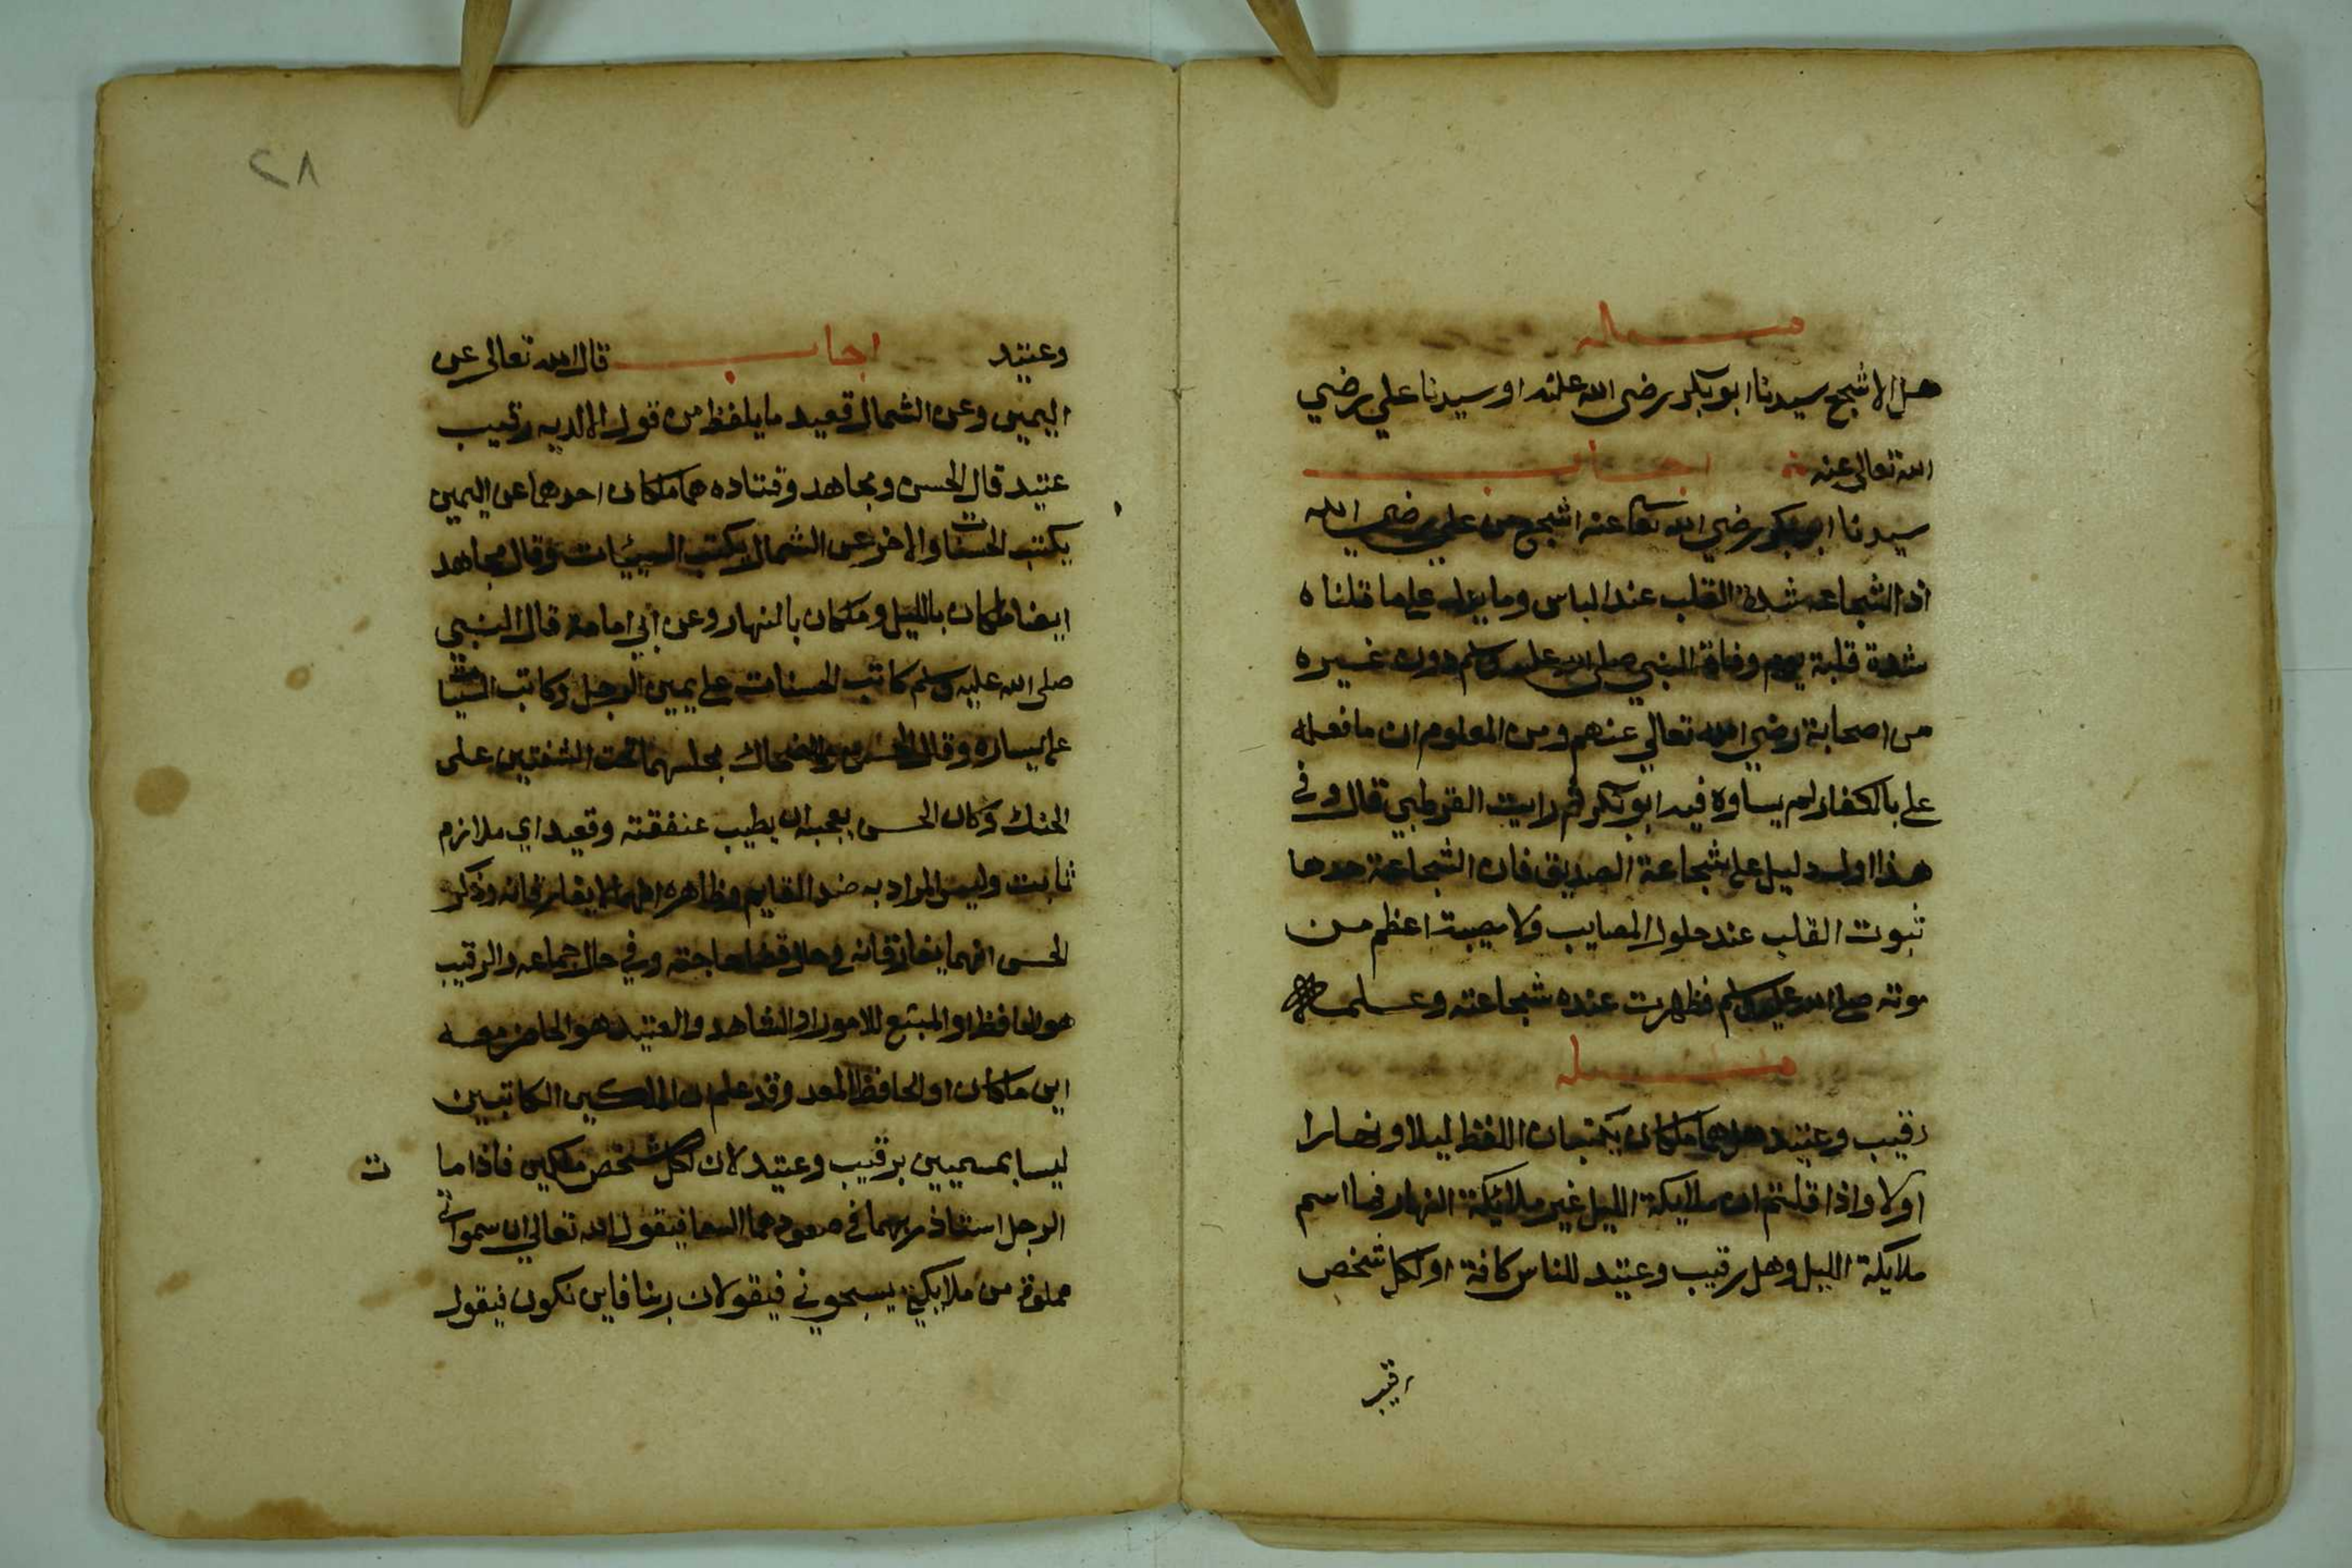 مسئله
هل الاشجع سيدنا ابو بكر رضى الله عنه او سيدنا علي رضي
الله تعالى عنه اجاب
سيدنا ابو بكر رضي الله تعا عنه اشجع من علي رضي الله
اذ الشجاعه شدة القلب عند الباس وما يدل على ما قلناه
شدة قلبة يوم وفاة النبي صلى الله عليه وسلم دون غيره
من اصحابة رضي الله تعالي عنهم ومن المعلوم ان ما فعله
علي بالكفار لم يساوه فيه ابو بكر ثم رايت القرطبي قال وفي
هذا اول دليل على شجاعة الصديق فان الشجاعة حدها
ثبوت القلب عند حلول المصايب ولا مصيبت اعظم من
موته صلى الله عليه وسلم فظهرت عنده شجاعته وعلمه
مسئله
رقيب وعتيد هل هما ملكان يكتبان اللفظ ليلا ونهارا
اولا واذا قلتم ان ملايكة الليل غير ملائيكة النهار فما اسم
ملايكة الليل وهل رقيب وعتيد للناس كافة او لكل شخص
رقيب
٢٨
وعتيد اجاب قال الله تعالى عن
اليمين وعن الشمال قعيد ما يلفظ من قول الا لديه رقيب
عتيد قال الحسن ومجاهد وقتاده هما ملكان احدهما عن اليمين
يكتب الحسنات والاخر عن الشمال يكتب السيئات وقال مجاهد
ايضا ملكان بالليل وملكان بالنهار وعن أبي امامة قال النبي
صلى الله عليه وسلم كاتب الحسنات على يمين الرجل وكاتب السيئات
على يساره وقال الحسن والضحاك مجلسهما تحت الشفتين على
الحنك وكان الحسن يعجبه ان يطيب عنفقته وقعيد اي ملازم
ثابت وليس المراد به ضد القايم وظاهره انهما لا يفارقانه وذكر
الحسن انهما يفارقانه في حال قضا حاجته وفي حال جماعه والرقيب
هو الحافظ او المتبع للامور او الشاهد والعتيد هو الحاضر معه
اين ماكان او الحافظ المعد وقد علم ان الملكين الكاتبين
ليسا بمسميين برقيب وعتيد لان لكل شخص ملكين فاذا ما
ت
الرجل استاذ ربهما في صعودهما السما فيقول الله تعالي ان سمواتي
مملوة من ملايكتي يسبحوني فيقولان ربنا فاين نكون فيقول